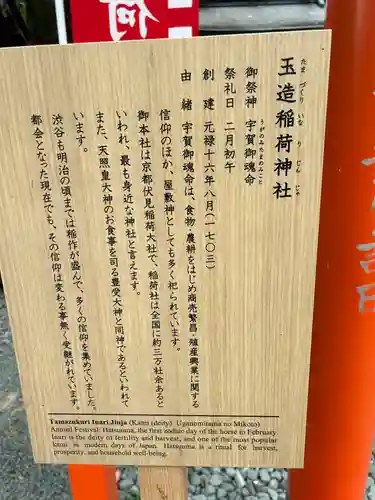 荷
玉造稲荷神社
たまつくりいなりじんじゃ
御祭神 宇賀御魂命
うがのみたまのみこと
祭礼日 二月初午
創建 元禄十六年八月(一七〇三)
由緒 宇賀御魂命は、食物・農耕をはじめ商売繁昌・殖産興業に関する
信仰のほか、屋敷神としても多く祀られています。
御本社は京都伏見稲荷大社で、稲荷社は全国に約三万社余あると
いわれ、最も身近な神社と言えます。
また、天照皇大神のお食事を司る豊受大神と同神であるといわれて
います。
渋谷も明治の頃までは稲作が盛んで、多くの信仰を集めていました。
都会となった現在でも、その信仰は変わる事無く受継がれています。
Tamazukuri Inari Jinja (Kami (deity) Uganomitama no Mikoto)
Annual Festival: Hatsuuma, the first zodiac day of the horse in February.
Inari is the deity of fertility and harvest, and one of the most popular
kami in modern days of Japan. Hatsuuma is a ritual for harvest,
prosperity, and household well-being.